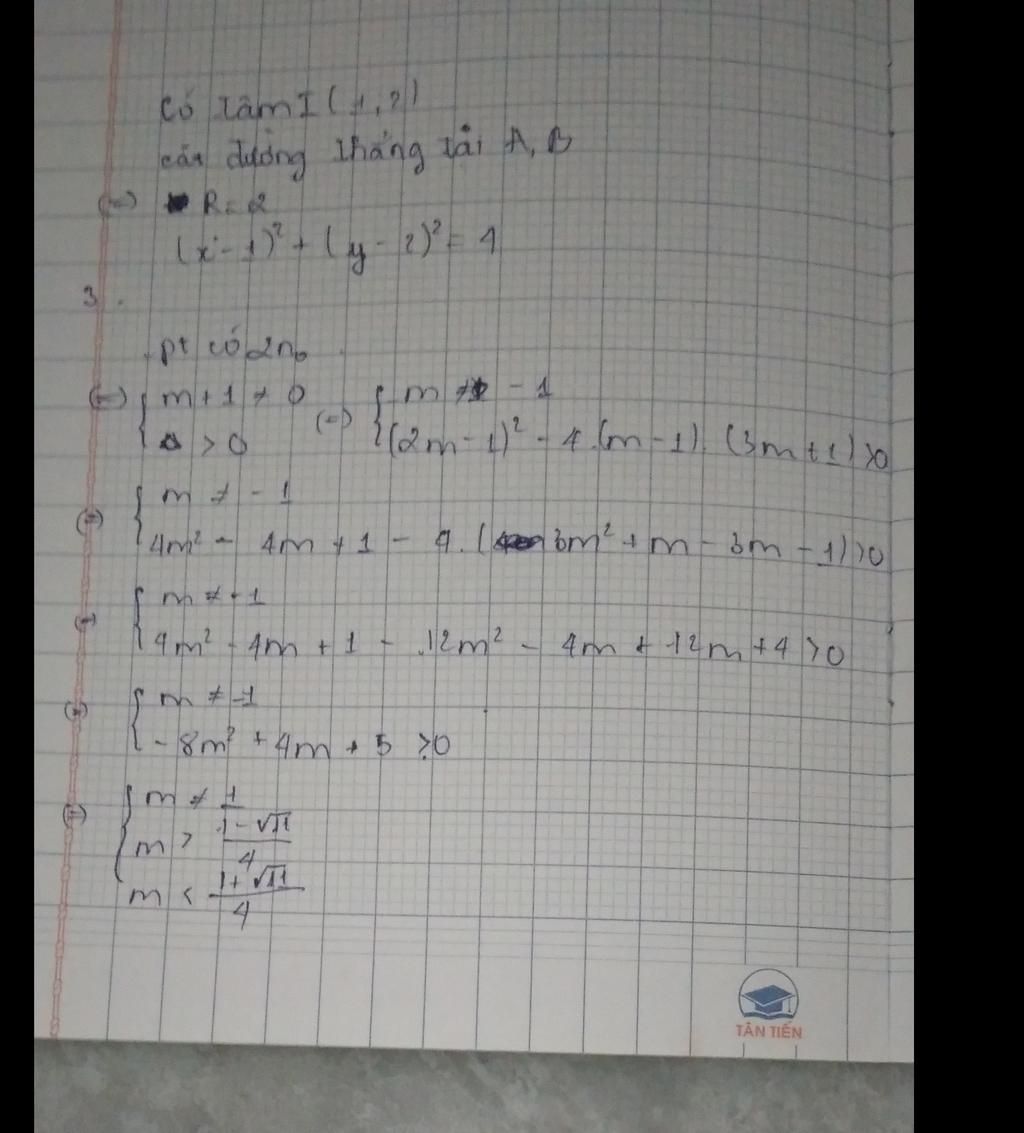 Có tâm I ( 1, 2 )
cắt đường thẳng tại A, B
(=) R = 2
(x - 1)² + (y - 2)² = 4
3.
pt có 2n₀
(=) { m + 1 ≠ 0 (=) { m ≠ - 1
Δ > 0 (2m - 1)² - 4.(m - 1). (3m + 1) > 0
(=) { m ≠ - 1
4m² - 4m + 1 - 4. ( 3m² + m - 3m - 1) > 0
(=) { m ≠ - 1
4m² - 4m + 1 - 12m² - 4m + 12m + 4 > 0
(=) { m ≠ -1
- 8m² + 4m + 5 > 0
(=) { m ≠ 1
m > (1 - √11)/4
m < (1 + √11)/4
TÂN TIẾN